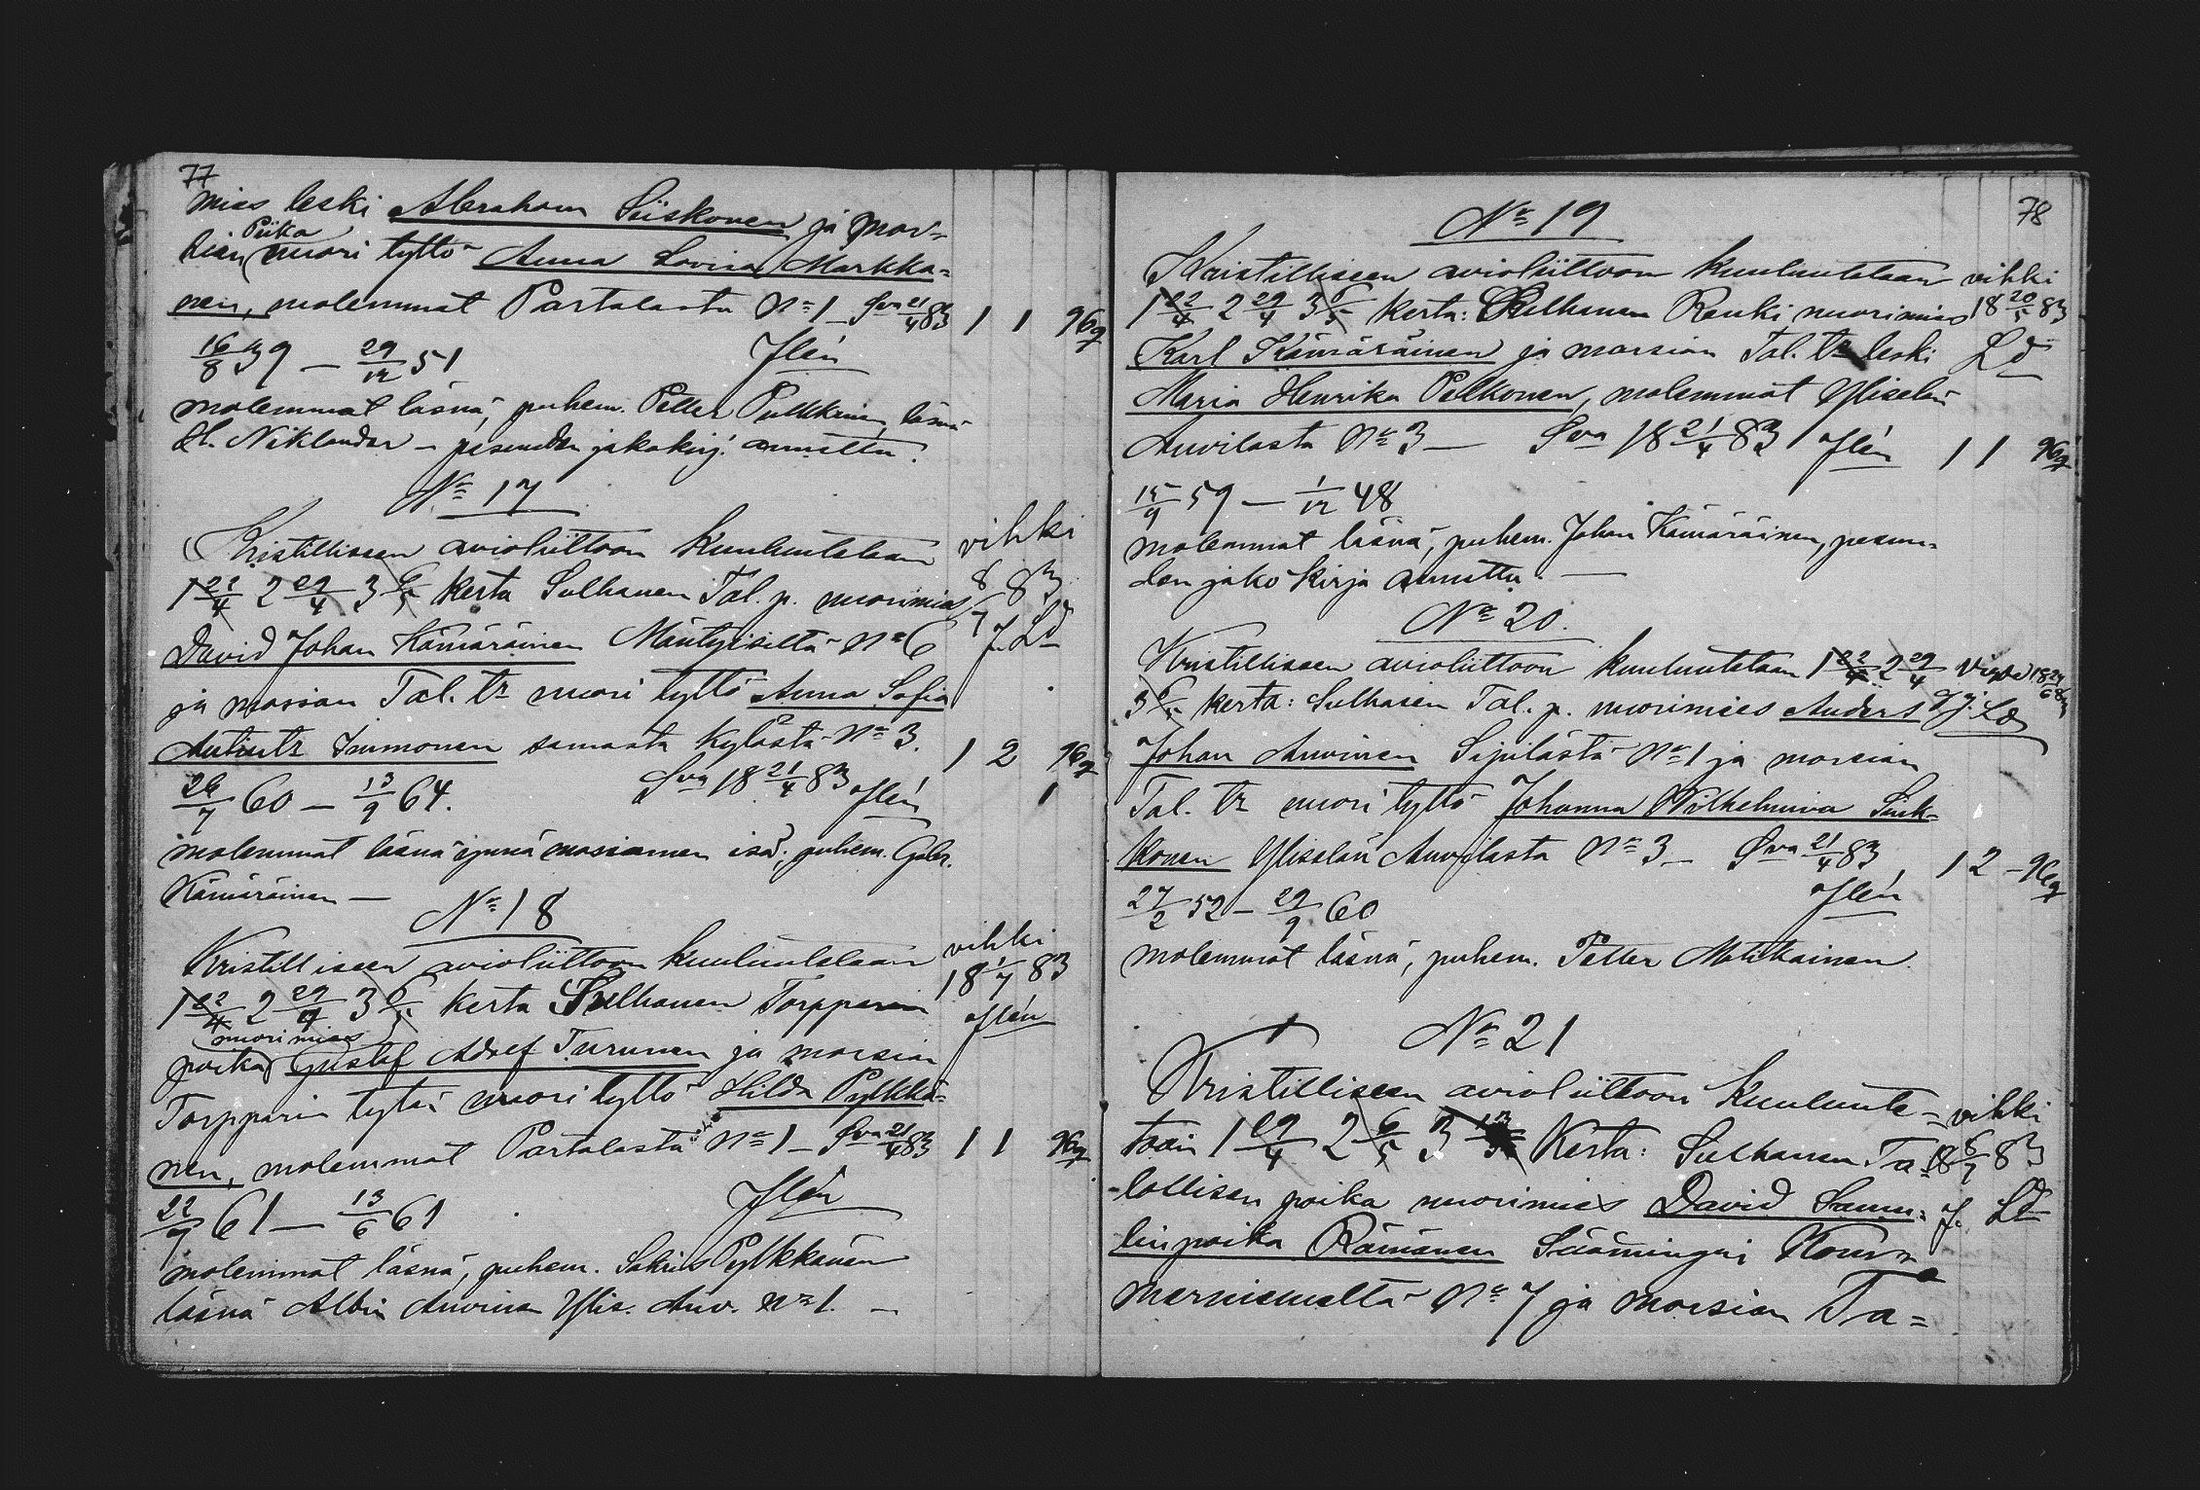 77
mies leski Abraham Siiskonen ja mor-
Piika
sian nuori tyttö Anna Lovisa Markka-
nen, molemmat Partalasta No 1 Sva 21/4 83 1 1
16/8 39 — 29/12 51
molemmat läsnä, puhem. Petter Pulkkinen, läsnä
H. Niklander – pesuudan jakokirj. annettu.
No 17
Kristilliseen avioliittoon kuulutetaan vihki
1 22/4 2 29/4 3 6/5 kerta Sulhanen Tal. p. nuorimies 8/7 83
David Johan Kämäräinen Mäntyiseltä No 6 J. Ld
ja morsian Tal. tr nuori tyttö Anna Sofia
Antintr Immonen samasta kylästä No 3. 1 2
26/7 60 — 13/9 64. Sva 18 21/4 83
1
molemmat läsnä ynnä morsiamen isä; puhem. Gabr.
Kämäräinen —
No 18
Kristilliseen avioliittoon kuulutetaan vihki
1 22/4 2 29/4 3 6/5 kerta Sulhanen Torpparin 18 1/7 83
nuorimies
poika Gustaf Adolf Turunen ja morsian
Torpparin tytär nuori tyttö Hilda Pylkkä-
nen, molemmat Partalasta No 1 — Sva 21/4 83 1 1
22/9 61 — 13/6 61
molemmat läsnä, puhem. Sakris Pylkkänen
läsnä Albin Auvinen Ylis. Auv. No 1. —
78
No 19
Kristilliseen avioliittoon kuulutetaan vihki
1 22/4 2 29/4 3 6/5 kerta: Sulhanen Renki nuorimies 18 20/5 83
Karl Kämäräinen ja morsian Tal. tr leski Ld
Maria Henrika Pelkonen, molemmat Yliselän
Auvilasta No 3 — Sva 18 21/4 83 1 1
15/9 59 — 1/12 48
molemmat läsnä, puhem. Johan Kämäräinen, pesuu-
den jako kirja annettu. —
No 20.
Kristilliseen avioliittoon kuulutetaan 1 22/4 2 29/4
3 6/5 kerta: Sulhasen Tal. p. nuorimies Anders
Johan Auvinen Sipilästä No 1 ja morsian
Tal. tr nuori tyttö Johanna Wilhelmiina Siisk-
konen Ylisslän Auvilasta No 3 — Sva 21/4 83 1 2
27/2 52 — 29/9 60
molemmat läsnä, puhem. Petter Matikainen.
No 21
Kristilliseen avioliittoon Kuulute- vihki
taan 1 29/4 2 6/5 3 13/5 Kerta: Sulhanen Ta- 18 6/7 83
lollisen poika nuorimies David Samu- J. Ld
linpoika Rämänen Säämingin
marniemeltä No 7 ja morsian Ta=